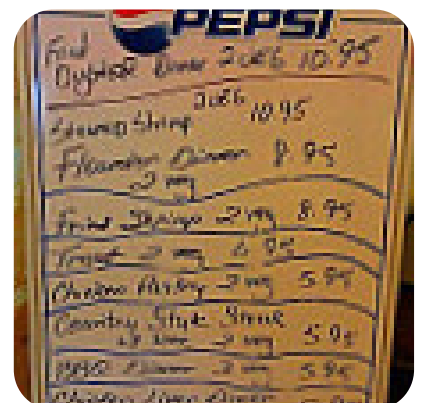 PEPSI
Fried
Oyster Dinner 2 veg 10.95
2 veg
Steamed Shrimp 10.95
Flounder Dinner 8.95
2 veg
Fried Shrimp 2 veg 8.95
Trout 2 veg 6.95
Chicken 2 veg 5.95
Country Style Steak
2 veg 5.95
BBQ Dinner 2 veg 5.95
Chicken Liver Dinner 5.95